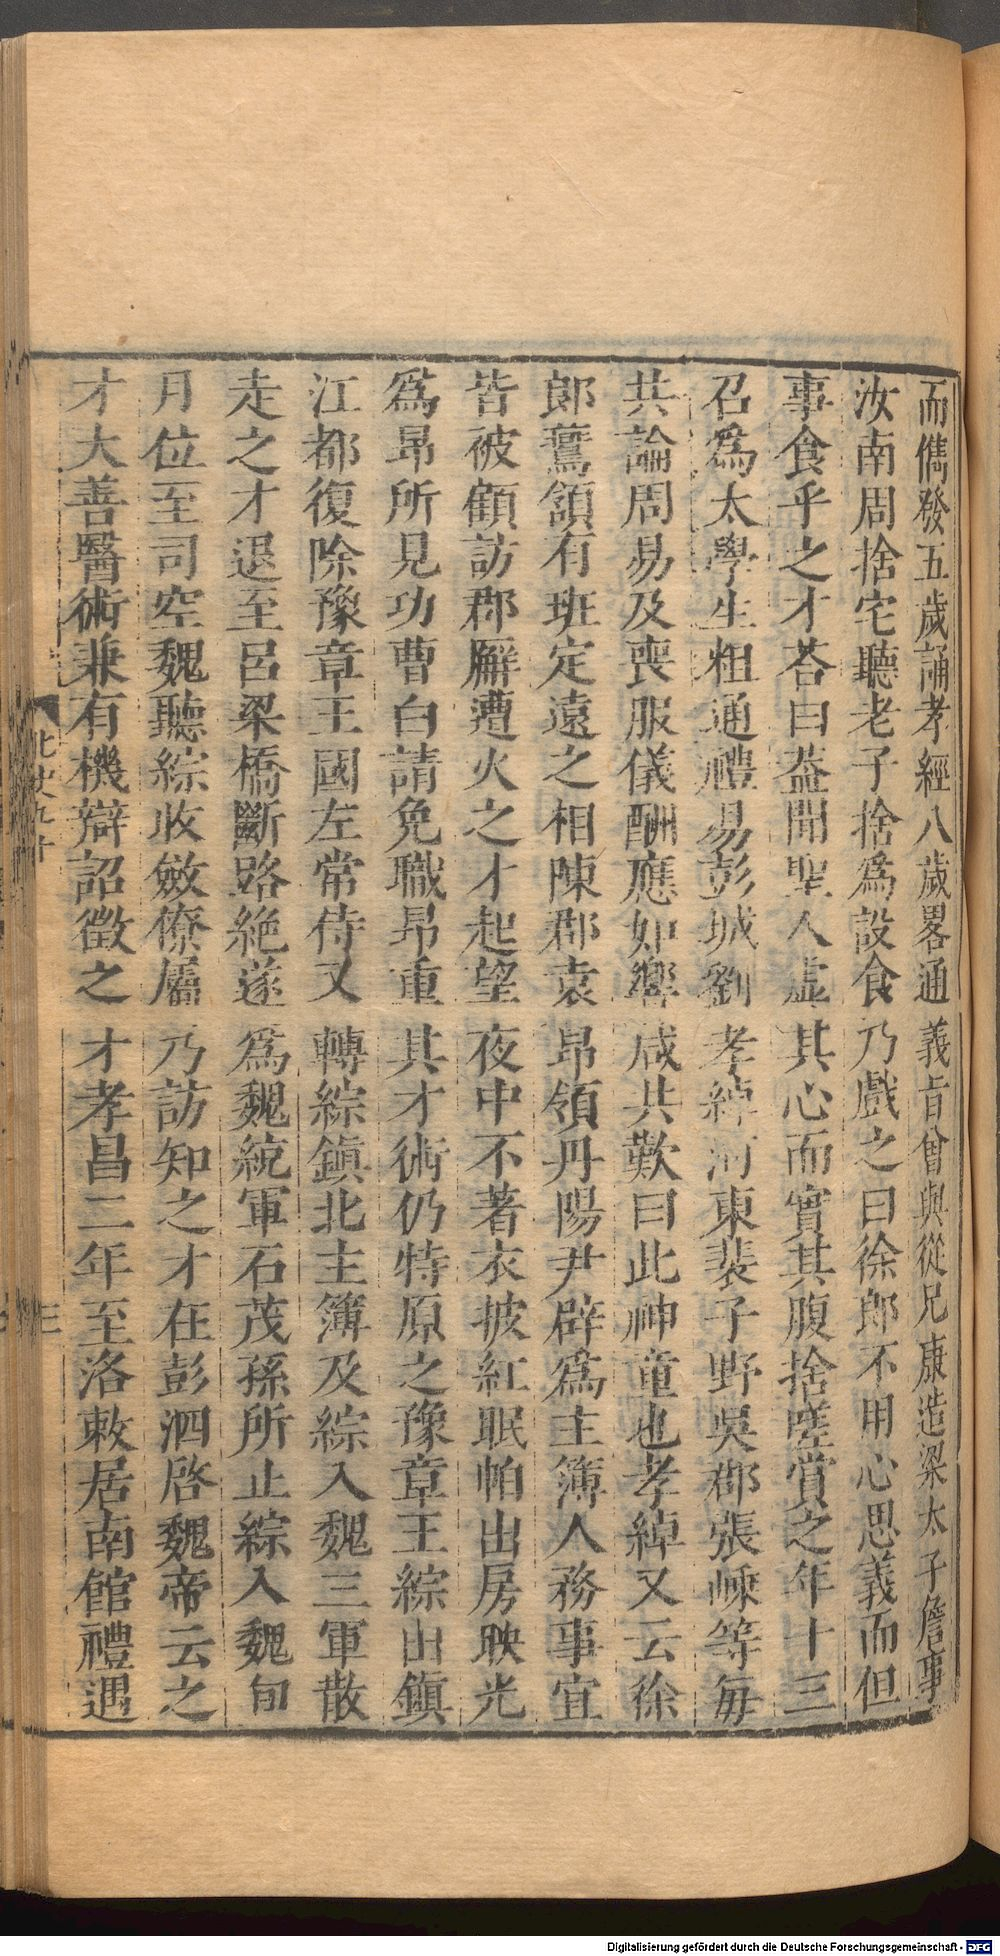 而儁發五歲誦孝經八歲畧通義旨曾與從兄康造梁太子詹事
汝南周捨宅聽老子捨爲設食乃戲之曰徐郎不用心思義而但
事食乎之才荅曰葢聞聖人虛其心而實其腹捨嗟賞之年十三
召爲太學生粗通禮易彭城劉孝綽河東裴子野吳郡張嵊等每
共論周易及喪服儀酬應如響咸共歎曰此神童也孝綽又云徐
郎鷰頷有班定遠之相陳郡袁昂領丹陽尹辟爲主簿人務事宜
皆被顧訪郡廨遭火之才起望夜中不著衣披紅眠帕出房映光
爲昂所見功曹白請免職昂重其才術仍特原之豫章王綜出鎮
江都復除豫章王國左常侍又轉綜鎭北主簿及綜入魏三軍散
走之才退至呂梁橋斷路絕遂爲魏統軍石茂孫所止綜入魏旬
月位至司空魏聽綜收斂僚屬乃訪知之才在彭泗啓魏帝云之
才大善醫術兼有機辯詔徵之才孝昌二年至洛敕居南館禮遇
北史九十
三
Digitalisierung gefördert durch die Deutsche Forschungsgemeinschaft - DFG